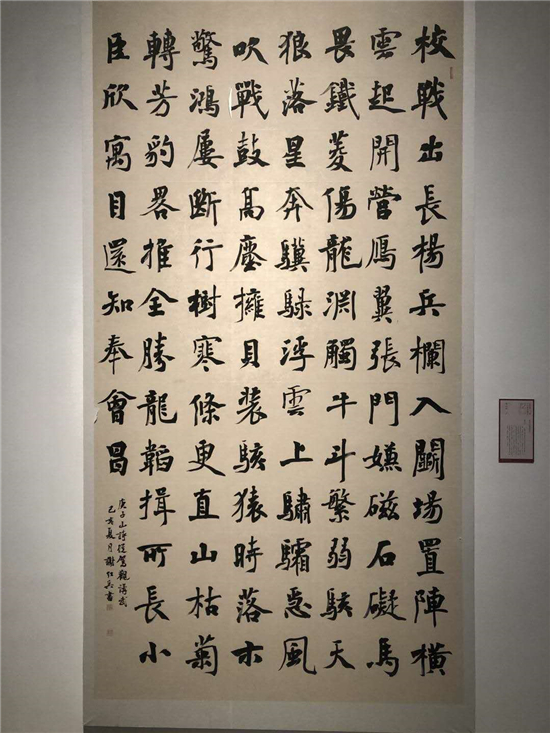 校戰出長楊兵欄入鬭場置陣橫
雲起開營鴈翼張門嫌磁石礙馬
畏鐵菱傷龍淵觸牛斗繁弱駭天
狼落星奔驥騄浮雲上驌驦急風
吹戰鼓高塵擁貝裝駭猿時落木
驚鴻屢斷行樹寒條更直山枯菊
轉芳豹畧推全勝龍韜揖所長小
臣欣寓目還知奉會昌
庾子山詩從駕觀講武
己亥夏月謝書